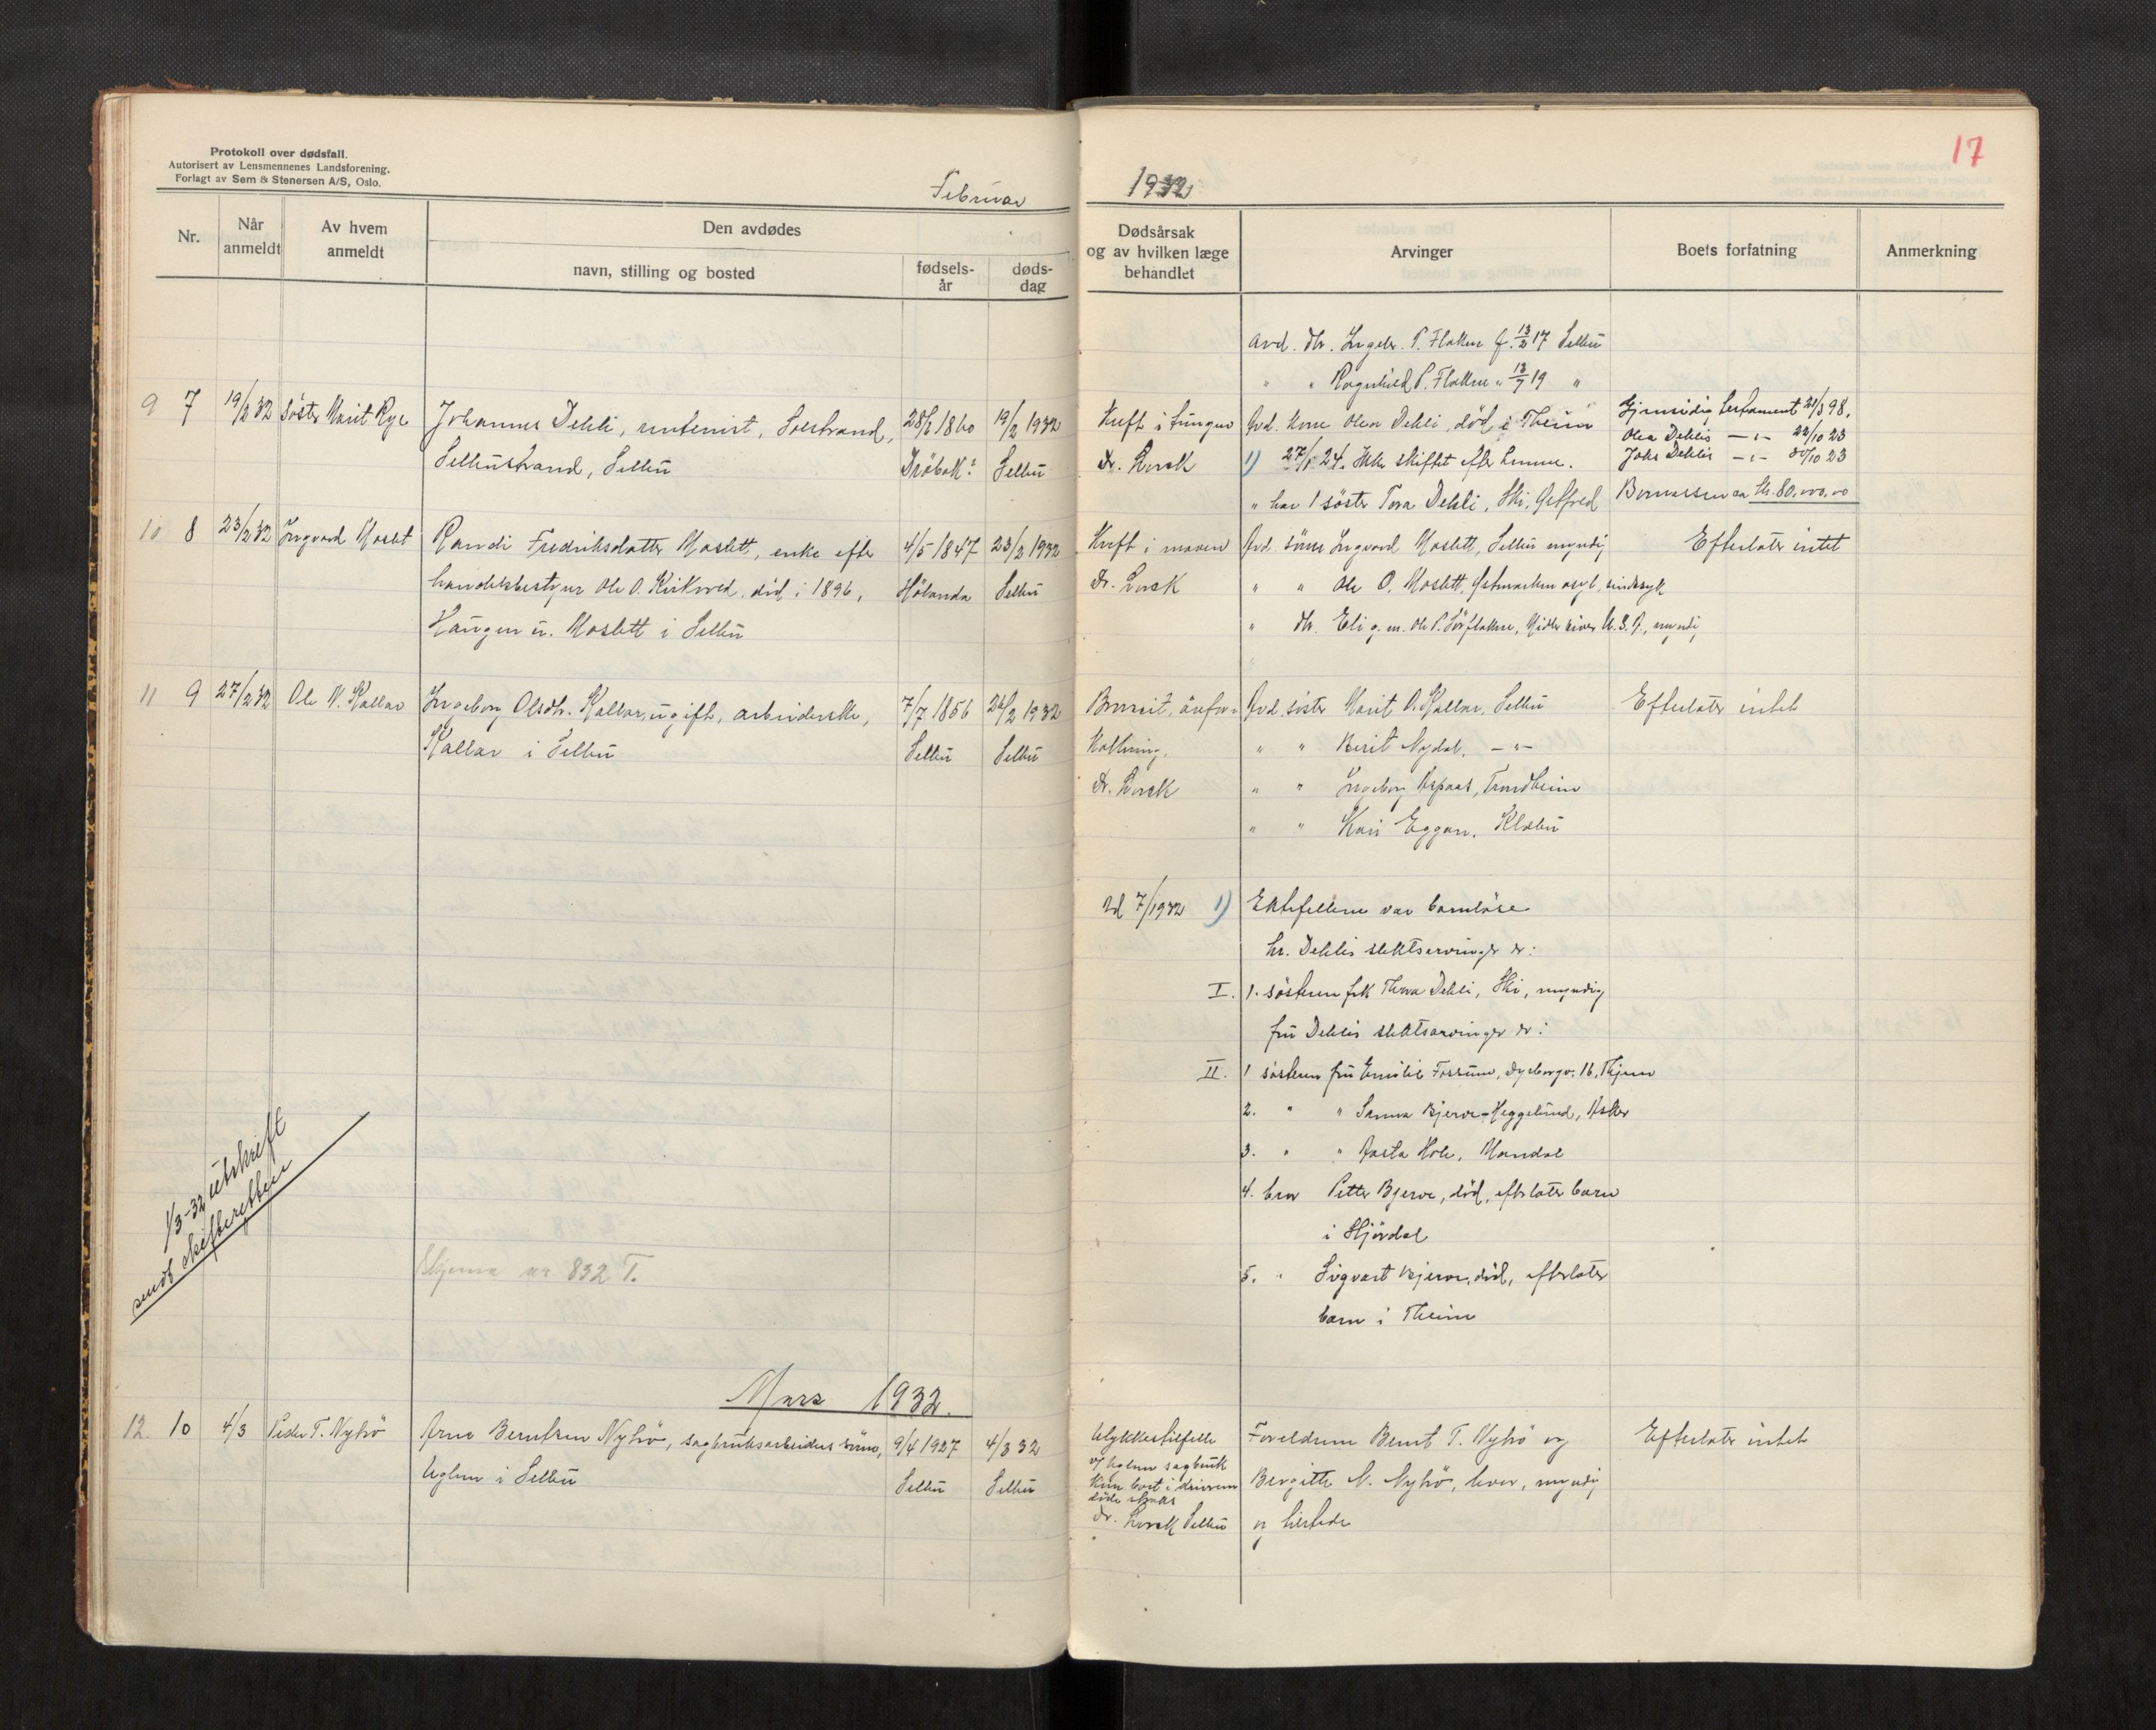 Protokoll over dødsfall.
Autorisert av Lensmennenes Landsforening.
Forlagt av Sem & Stenersen A/S, Oslo.
Februar
Nr.
Når anmeldt
Av hvem anmeldt
Den avdødes
navn, stilling og bosted
fødsels-år
døds-dag
9 7 19/2 32 Söster Marit Rye Johannes Dehli, rentenist, Solstrand, 28/6 1860 19/2 1932
Selbustrand, Selbu Dröbak? Selbu
10 8 23/2 32 Ingvard Moslet Randi Fredriksdatter Moslett, enke efter 4/5 1847 23/2 1932
handelsbestyrer Ole O. Kirkvold, död i 1896, Hölanda Selbu
Haugen u. Moslett i Selbu
11 9 27/2 32 Ole N. Kallar Ingeborg Olsdtr. Kallar, ugift, arbeiderske, 7/7 1856 26/2 1932
Kallar i Selbu Selbu Selbu
1/3-32 utskrift
sendt skifteretten
Skjema nr 832 T.
Mars 1932.
12. 10 4/3 Peder T. Nyhö Arne Berntsen Nyhö, sagbruksarbeiders sönn, 9/4 1927 4/3 32
Uglem i Selbu Selbu Selbu
17
1932
Dødsårsak og av hvilken læge behandlet
Arvinger
Boets forfatning
Anmerkning
Avd. dtr. Ingebr. P. Flakne f. 13/2 17 Selbu
" " Ragnhild P. Flakne " 13/7 19 "
Kreft i lungen Avd. kone Olea Dehli, död i Theim Gjensidig testament 21/3 98.
Olea Dehlis — " — 22/10 23
Dr. Lorck 1) 27/1 24. Ikke skiftet efter henne. Johs Dehlis — " — 30/10 23
" har 1 söster Tora Dehli, Ski, Østfold Bruttoformuen ca kr. 80.000,00
Kreft i maven Avd. sönn Ingvard Moslett, Selbu myndig Efterlater intet
Dr. Lorck " " Ole O. Moslett, Østmarken asyl, sindssyk
" dtr. Eli g. m. Ole P. Sörflakne, Midle river U.S.A., myndig
Bronkit, åreforkalkning. Avd. söster Marit O. Kallar, Selbu Efterlater intet
" " Berit Nydal, — " —
Dr. Lorck " " Ingeborg Aspaas, Trondheim
" " Kari Eggan, Klæbu
Ad 7/1932 1) Ektefellene var barnlöse
hr. Dehlis slektsarvinger er:
I. 1. sösteren frk Thora Dehli, Ski, myndig
fru Dehlis slektsarvinger er:
II. 1 sösteren fru Emilie Fossum, Dyborgv. 16, Thjem
2. " " Sanna Bjerve-Heggelund, Asker
3. " " Aasta Hole, Mandal
4. bror Petter Bjerve, död, efterlater barn
i Stjördal
5. " Sigvart Bjerve, död, efterlater
barn i Theim
Ulykkestilfelle Foreldrene Bernt T. Nyhö og Efterlater intet
v/ Uglem sagbruk
kom bort i drivrem Bergitte N. Nyhö, lever, myndig
döde straks
Dr. Lorck Selbu og tilstede